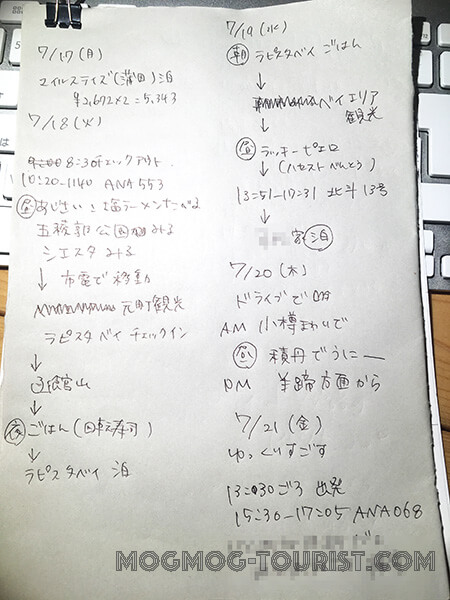 7/17(月)
マイルステイズ(蒲田)泊
¥2,672×2=5,343
7/18(火)
8:30チェックアウト.
10:20-1140 ANA553
昼 あじさい:塩ラーメンたべる
五稜郭公園みる
シエスタみる
↓ 市電で移動
元町観光
ラビスタベイ チェックイン
↓
函館山
↓
夜 ごはん(回転寿司)
↓
ラビスタベイ 泊
7/19(水)
朝 ラビスタベイ ごはん
↓
ベイエリア
観光
↓
昼 ラッキーピエロ
↓ (ハセストべんとう)
13:51-17:31 北斗13号
↓
家 泊
7/20(木)
ドライブで
AM 小樽まわりで
昼 積丹でうにー
PM 羊蹄方面から
7/21(金)
ゆっくりすごす
13:30ごろ 出発
15:30-17:05 ANA068
MOGMOG-TOURIST.COM